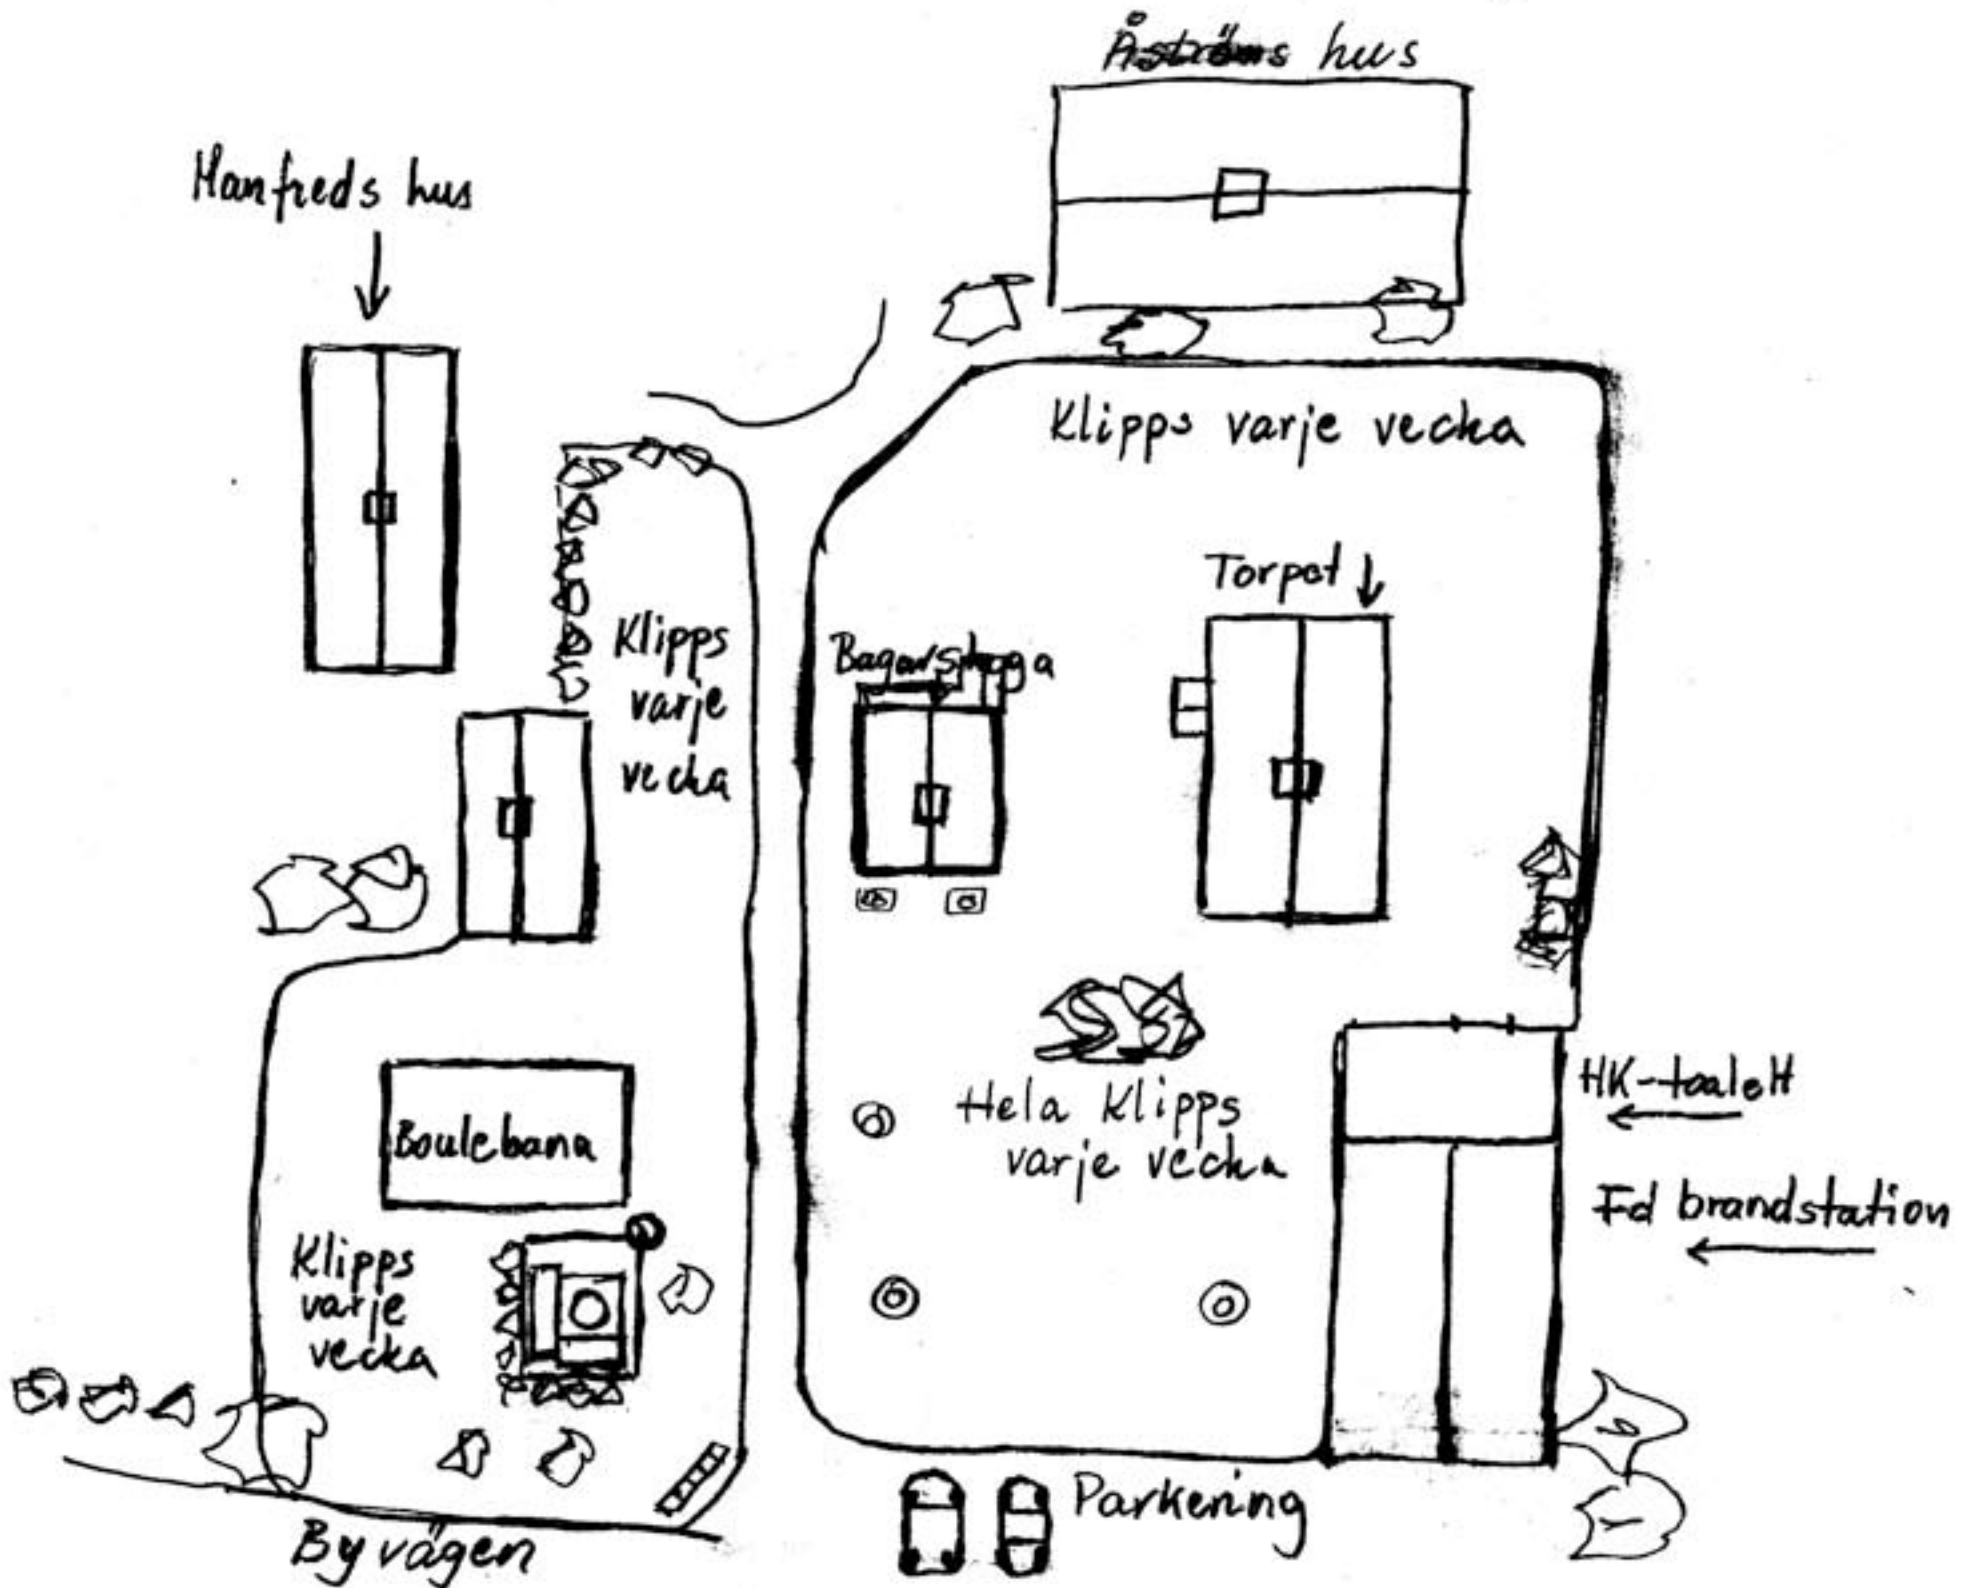 Åströms hus
Manfreds hus
Klipps varje vecka
Torpet
Klipps
varje
vecka
Bagarstuga
HK-toalett
Hela Klipps
varje vecka
Boulebana
Fd brandstation
Klipps
varje
vecka
Parkering
Byvägen